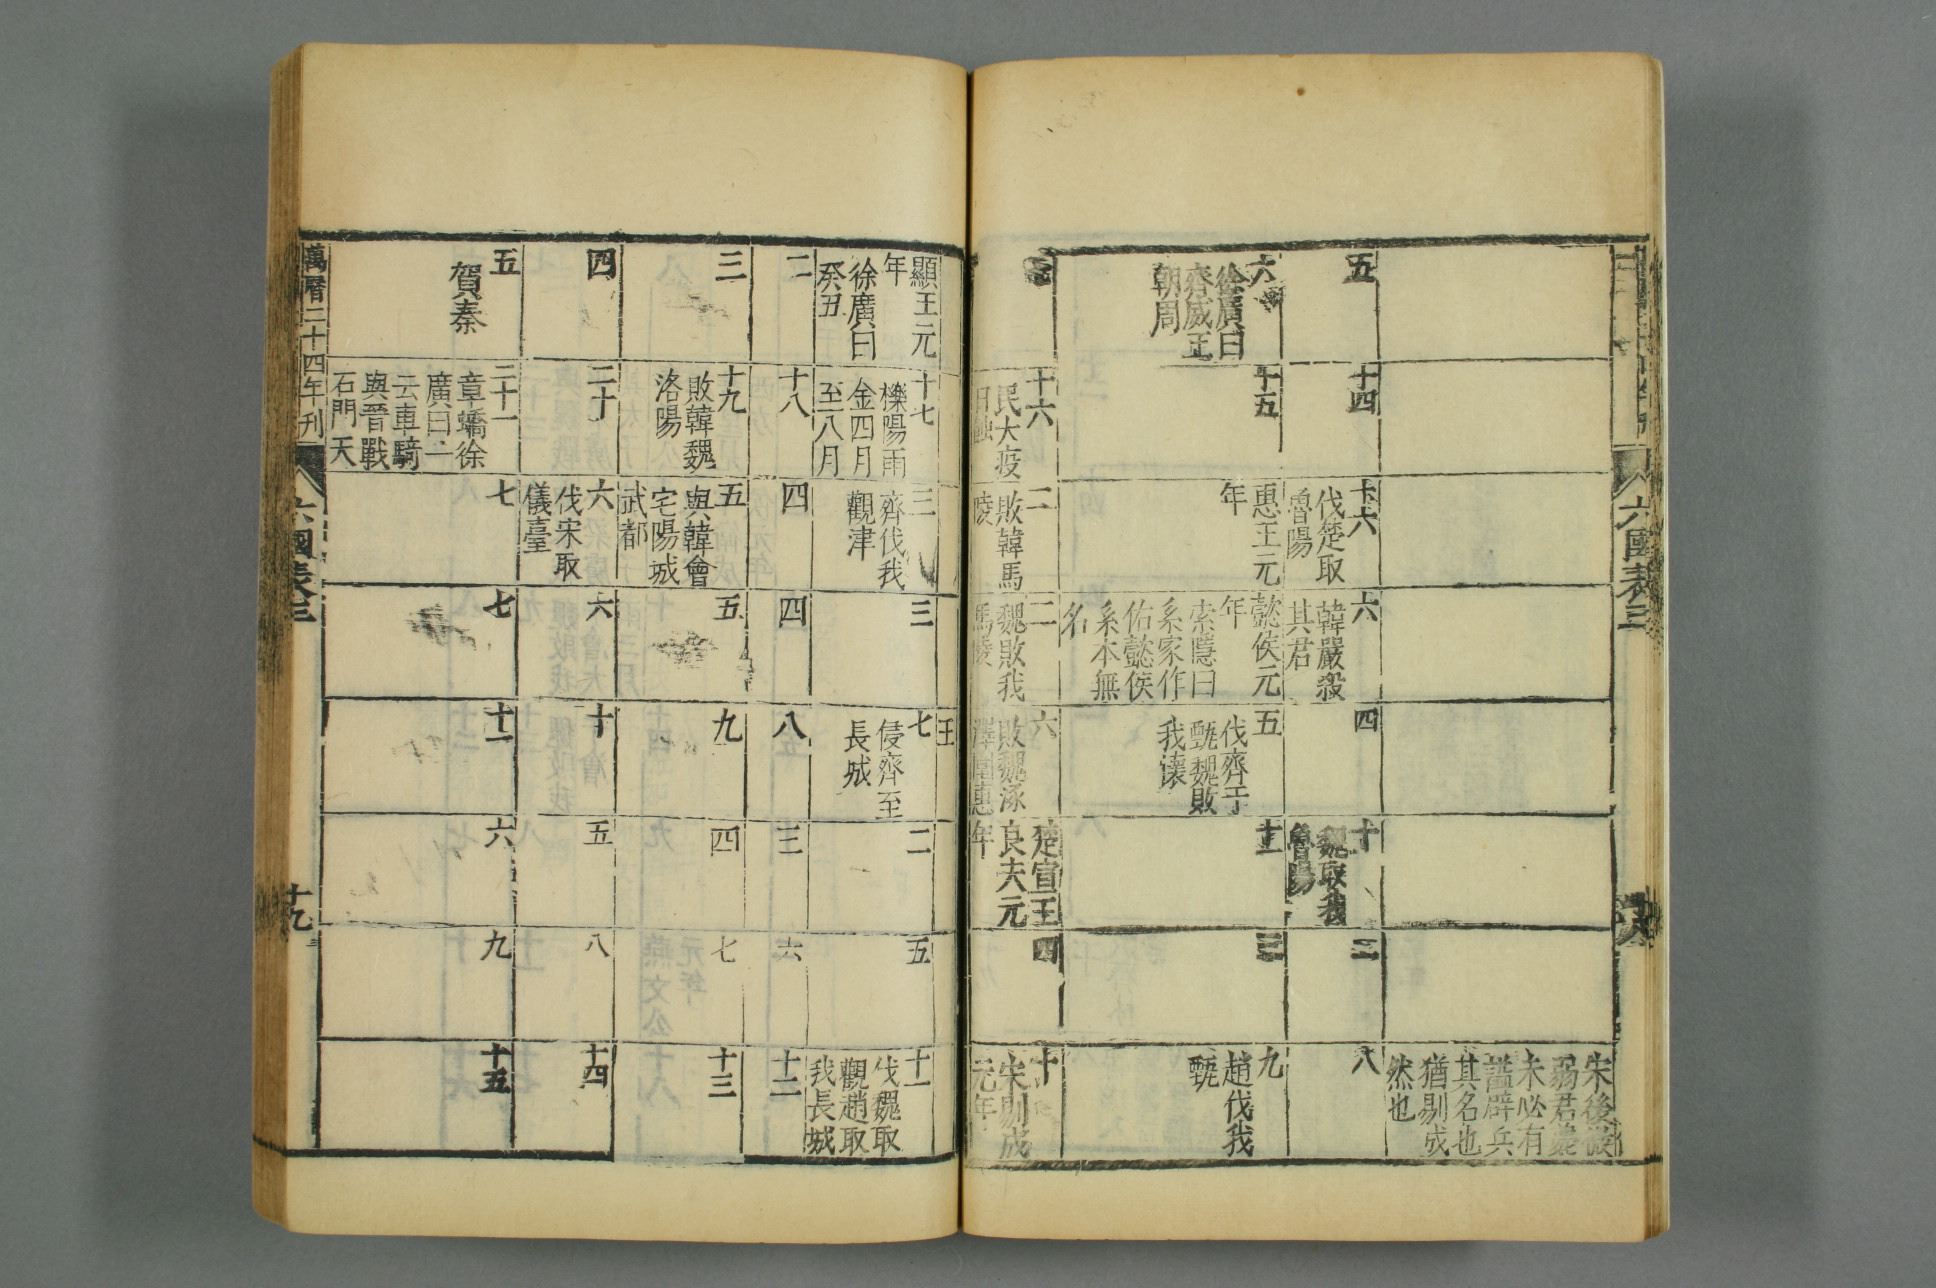 六國表三
宋後微
弱君薨
未必有
謚辟兵
其名也
猶剔成
然也
五
十四
十六
伐楚取
魯陽
六
韓嚴殺
其君
四
十
魏取我
魯陽
三
八
六
徐廣曰
齊威王
朝周
十五
惠王元
年
懿侯元
年
索隱曰
系家作
佑懿侯
系本無
名
五
伐齊于
甄魏敗
我懷
十一
三
九
趙伐我
甄
十六
民大疫
日蝕
二
敗韓馬
陵
二
魏敗我
馬陵
六
敗魏涿
澤圍惠
王
楚宣王
良夫元
年
四
十
宋剔成
元年
顯王元
年
徐廣曰
癸丑
十七
櫟陽雨
金四月
至八月
三
齊伐我
觀津
三
七
侵齊至
長城
二
五
十一
伐魏取
觀趙取
我長城
二
十八
四
四
八
三
六
十二
三
十九
敗韓魏
洛陽
五
與韓會
宅陽城
武都
五
九
四
七
十三
四
二十
六
伐宋取
儀臺
六
十
五
八
十四
五
賀秦
二十一
章蟜徐
廣曰一
云車騎
與晉戰
石門天
七
七
十一
六
九
十五
萬曆二十四年刊
六國表三
十九